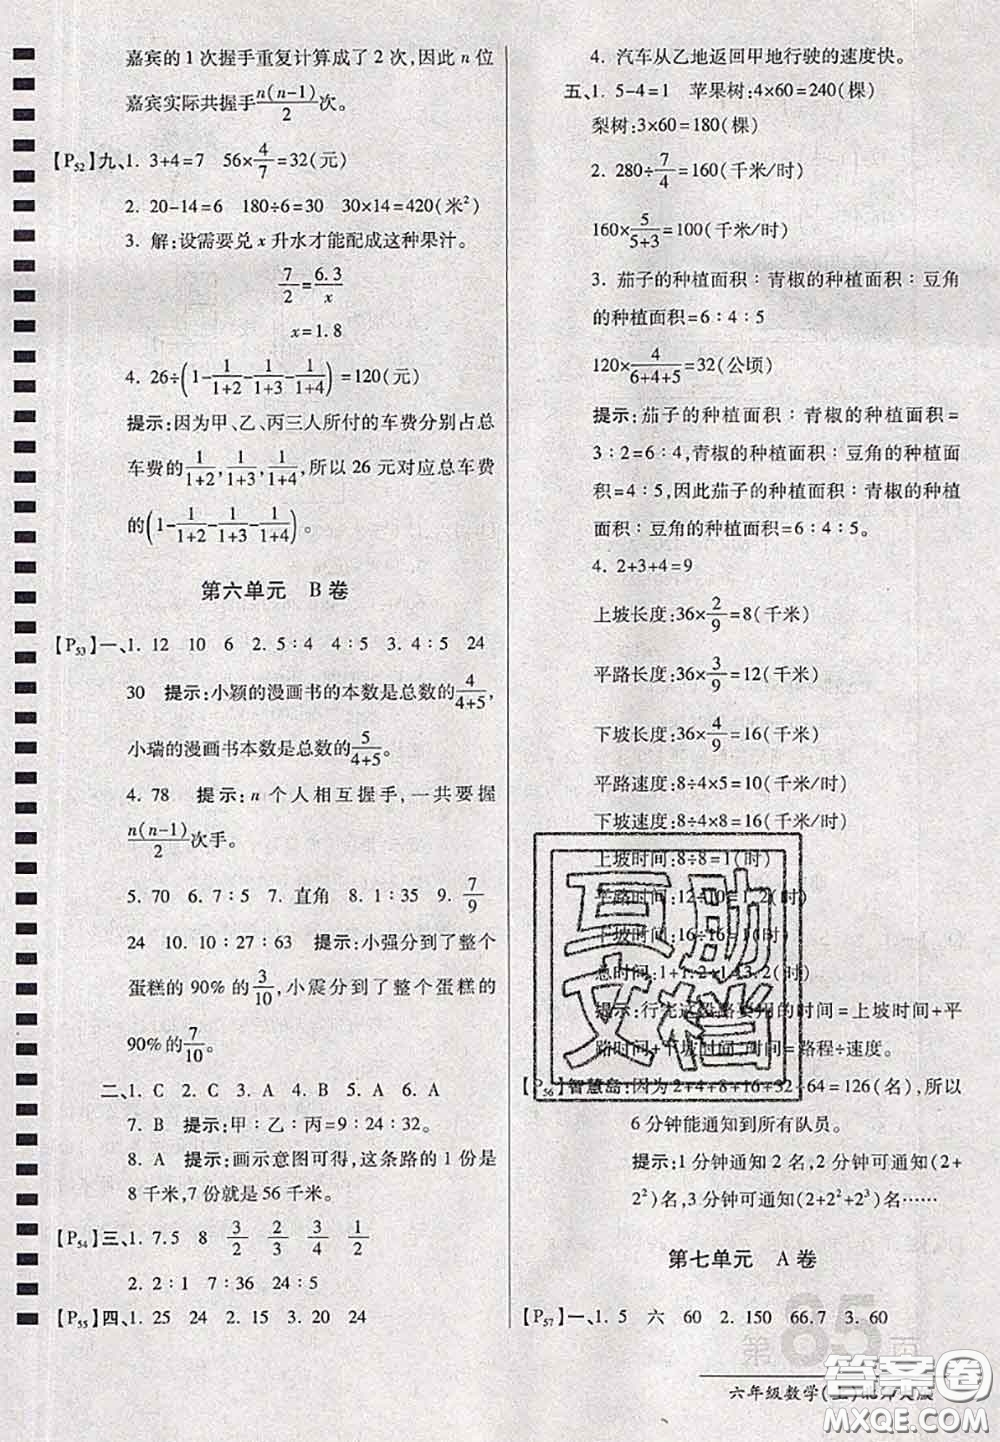 嘉宾的 1 次握手重复计算成了 2 次,因此 n 位
嘉宾实际共握手n(n-1)/2次。
【P52】九、1. 3+4=7　56×4/7=32(元)
2. 20-14=6　180÷6=30　30×14=420(米²)
3. 解:设需要兑 x 升水才能配成这种果汁。
7/2=6.3/x
x=1.8
4. 26÷(1-1/(1+2)-1/(1+3)-1/(1+4))=120(元)
提示:因为甲、乙、丙三人所付的车费分别占总
车费的1/(1+2),1/(1+3),1/(1+4),所以 26 元对应总车费
的(1-1/(1+2)-1/(1+3)-1/(1+4))。
第六单元　B 卷
【P53】一、1. 12　10　6　2. 5∶4　4∶5　3. 4∶5　24
30　提示:小颖的漫画书的本数是总数的4/(4+5),
小瑞的漫画书本数是总数的5/(4+5)。
4. 78　提示:n 个人相互握手,一共要握
n(n-1)/2次手。
5. 70　6. 7∶5　7. 直角　8. 1∶35　9. 7/9
24　10. 10∶27∶63　提示:小强分到了整个
蛋糕的 90%的3/10,小震分到了整个蛋糕的
90%的7/10。
二、1. C　2. C　3. A　4. C　5. A　6. A
7. B　提示:甲∶乙∶丙=9∶24∶32。
8. A　提示:画示意图可得,这条路的 1 份是
8 千米,7 份就是 56 千米。
【P54】三、1. 7.5　8　3/2　2/3　3/4　1/2
2. 2∶1　7∶36　24∶13
【P55】四、1. 25　24　2. 15　3. 20　24
4. 汽车从乙地返回甲地行驶的速度快。
五、1. 5-4=1　苹果树:4×60=240(棵)
梨树:3×60=180(棵)
2. 280÷7/4=160(千米/时)
160×5/(5+3)=100(千米/时)
3. 茄子的种植面积∶青椒的种植面积∶豆角
的种植面积=6∶4∶5
120×4/(6+4+5)=32(公顷)
提示:茄子的种植面积∶青椒的种植面积=
3∶2=6∶4,青椒的种植面积∶豆角的种植面积
=4∶5,因此茄子的种植面积∶青椒的种植
面积∶豆角的种植面积=6∶4∶5。
4. 2+3+4=9
上坡长度:36×2/9=8(千米)
平路长度:36×3/9=12(千米)
下坡长度:36×4/9=16(千米)
平路速度:8÷4×5=10(千米/时)
下坡速度:8÷4×8=16(千米/时)
上坡时间:8÷8=1(时)
平路时间:12÷10=1.2(时)
下坡时间:16÷16=1(时)
总时间:1+1.2+1=3.2(时)
提示:行完这段路要用的时间=上坡时间+平
路时间+下坡时间,时间=路程÷速度。
【P56】智慧岛:因为 2+4+8+16+32+64=126(名),所以
6 分钟能通知到所有队员。
提示:1 分钟通知 2 名,2 分钟可通知(2+
2²)名,3 分钟可通知(2+2²+2³)名……
第七单元　A 卷
【P57】一、1. 5　六　60　2. 150　66.7　3. 60
第 85 页
六年级数学(上)北师大版
互助
文档
答案圈
MXQE.COM